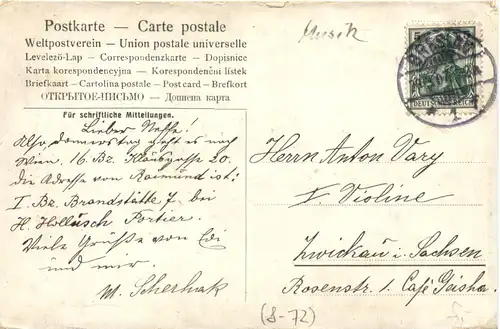 Postkarte — Carte postale
Weltpostverein — Union postale universelle
Levelező-Lap — Correspondenzkarte — Dopisnice
Karta korespondencyjna — Korespondenční lístek
Briefkaart — Cartolina postale — Post card — Brefkort
ОТКРЫТОЕ-ПИСЬМО — Дописна карта
Für schriftliche Mitteilungen.
Musik
DEUTSCHES REICH
Lieber Neffe!
Also, Donnerstag geht es nach
Wien. 16 Bz. 20.
die Adresse von Raimund ist:
I Bz. Brandstätte 7. bei
H. Hollusch Portier.
Viele Grüße von Edi
und mir.
M. Scherhak
Herrn Anton Vary
I Violine
Zwickau i. Sachsen
Rosenstr. 1. Café Geisha.
(8-72)